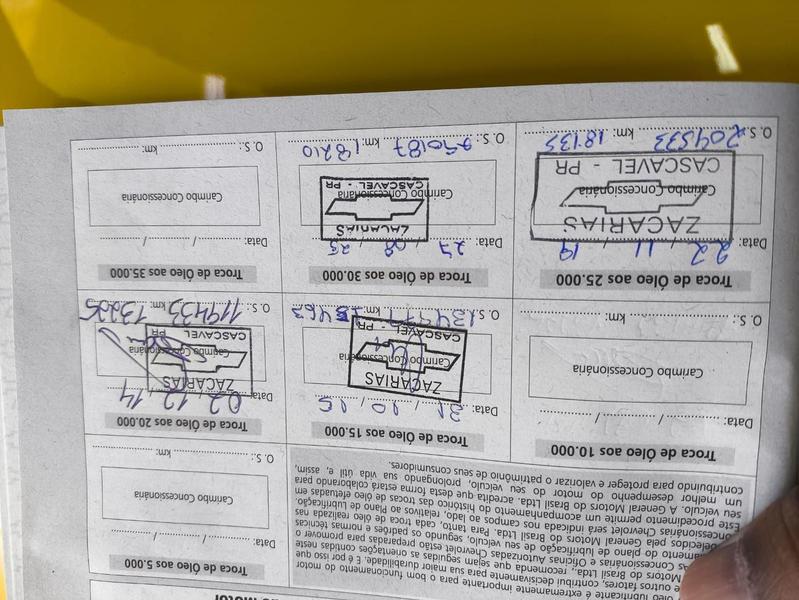 Motor
óleo lubrificante é extremamente importante para o bom funcionamento do motor
e outros fatores, contribui decisivamente para sua maior durabilidade. É por isso que
Motors do Brasil Ltda., recomenda que sejam seguidas as orientações contidas neste
as Concessionárias e Oficinas Autorizadas Chevrolet estão preparadas para promover o
do plano de lubrificação de seu veículo, segundo os padrões e normas técnicas
pela General Motors do Brasil Ltda. Para tanto, cada troca de óleo realizada nas
Concessionárias Chevrolet será indicada nos campos ao lado, relativos ao Plano de Lubrificação.
Este procedimento permite um acompanhamento do histórico das trocas de óleo efetuadas em
seu veículo. A General Motors do Brasil Ltda. acredita que desta forma estará colaborando para
um melhor desempenho do motor do seu veículo, prolongando sua vida útil e, assim,
contribuindo para proteger e valorizar o patrimônio de seus consumidores.
Troca de Óleo aos 5.000
Data: / /
Carimbo Concessionária
O. S.: km:
Troca de Óleo aos 10.000
Data: / /
Carimbo Concessionária
O. S.: km:
Troca de Óleo aos 15.000
Data: 31 / 10 / 15
ZACARIAS
Carimbo Concessionária
CASCAVEL - PR
O. S.: km:
Troca de Óleo aos 20.000
Data: 02 / 12 / 14
ZACARIAS
Carimbo Concessionária
CASCAVEL PR
O. S.: 119433 km:
Troca de Óleo aos 25.000
Data: 22 / 11 / 19
ZACARIAS
Carimbo Concessionária
CASCAVEL - PR
O. S.: 204533 km: 18135
Troca de Óleo aos 30.000
Data: 27 / 08 /
ZACARIAS
Carimbo Concessionária
CASCAVEL - PR
O. S.: km: 18210
Troca de Óleo aos 35.000
Data: / /
Carimbo Concessionária
O. S.: km: